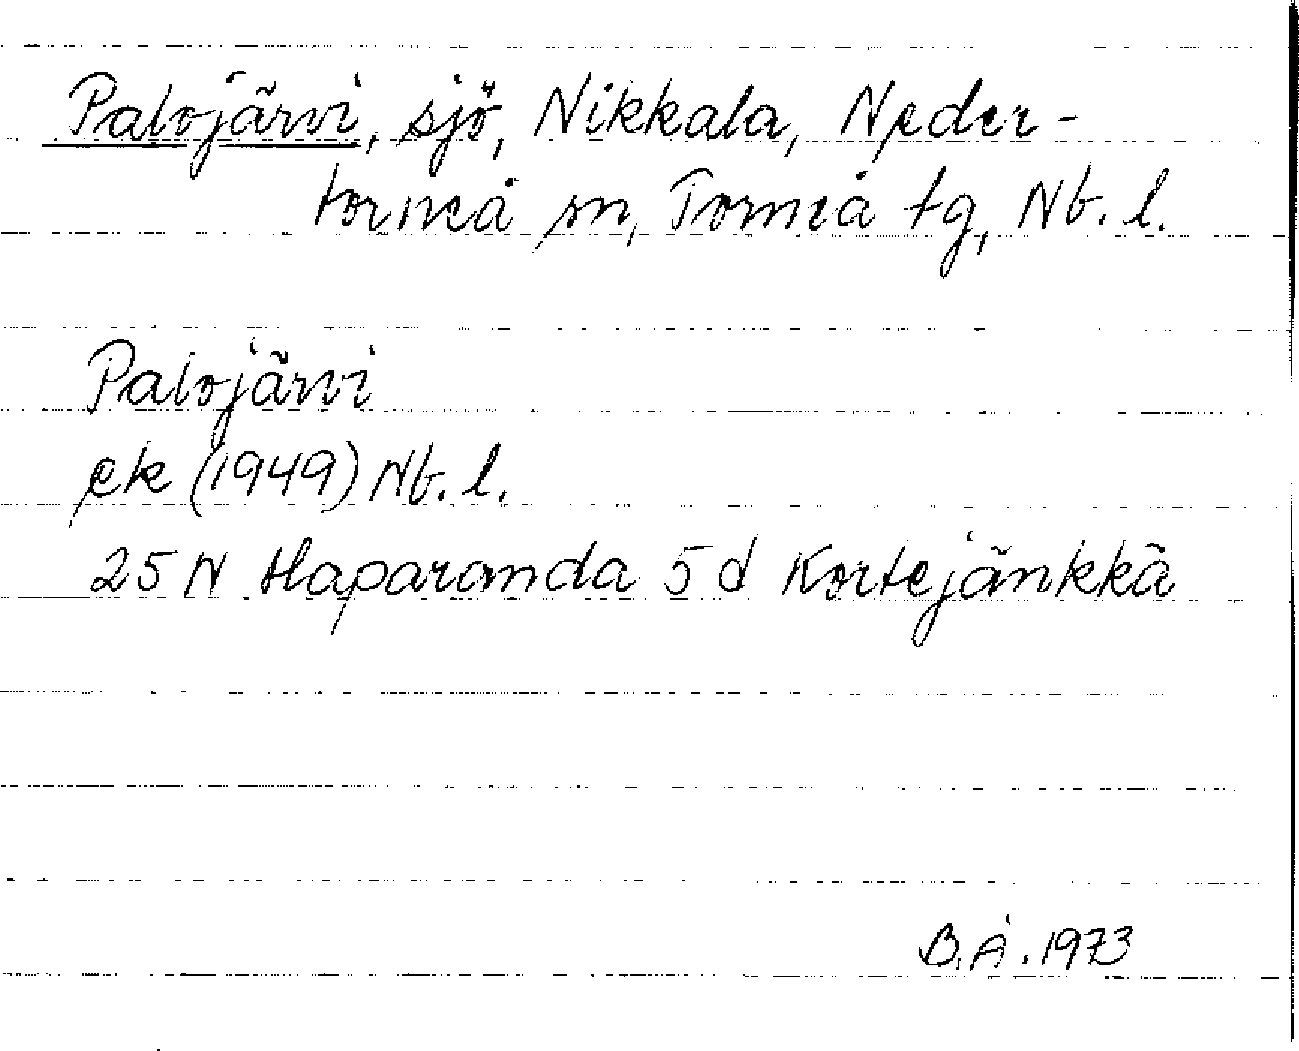 Palojärvi, sjö, Nikkala, Neder-
torneå sn, Torneå tg, Nb. l.
Palojärvi
ek (1949) Nb. l.
25 N Haparanda 5 d Kortejänkkä
B.Å. 1973